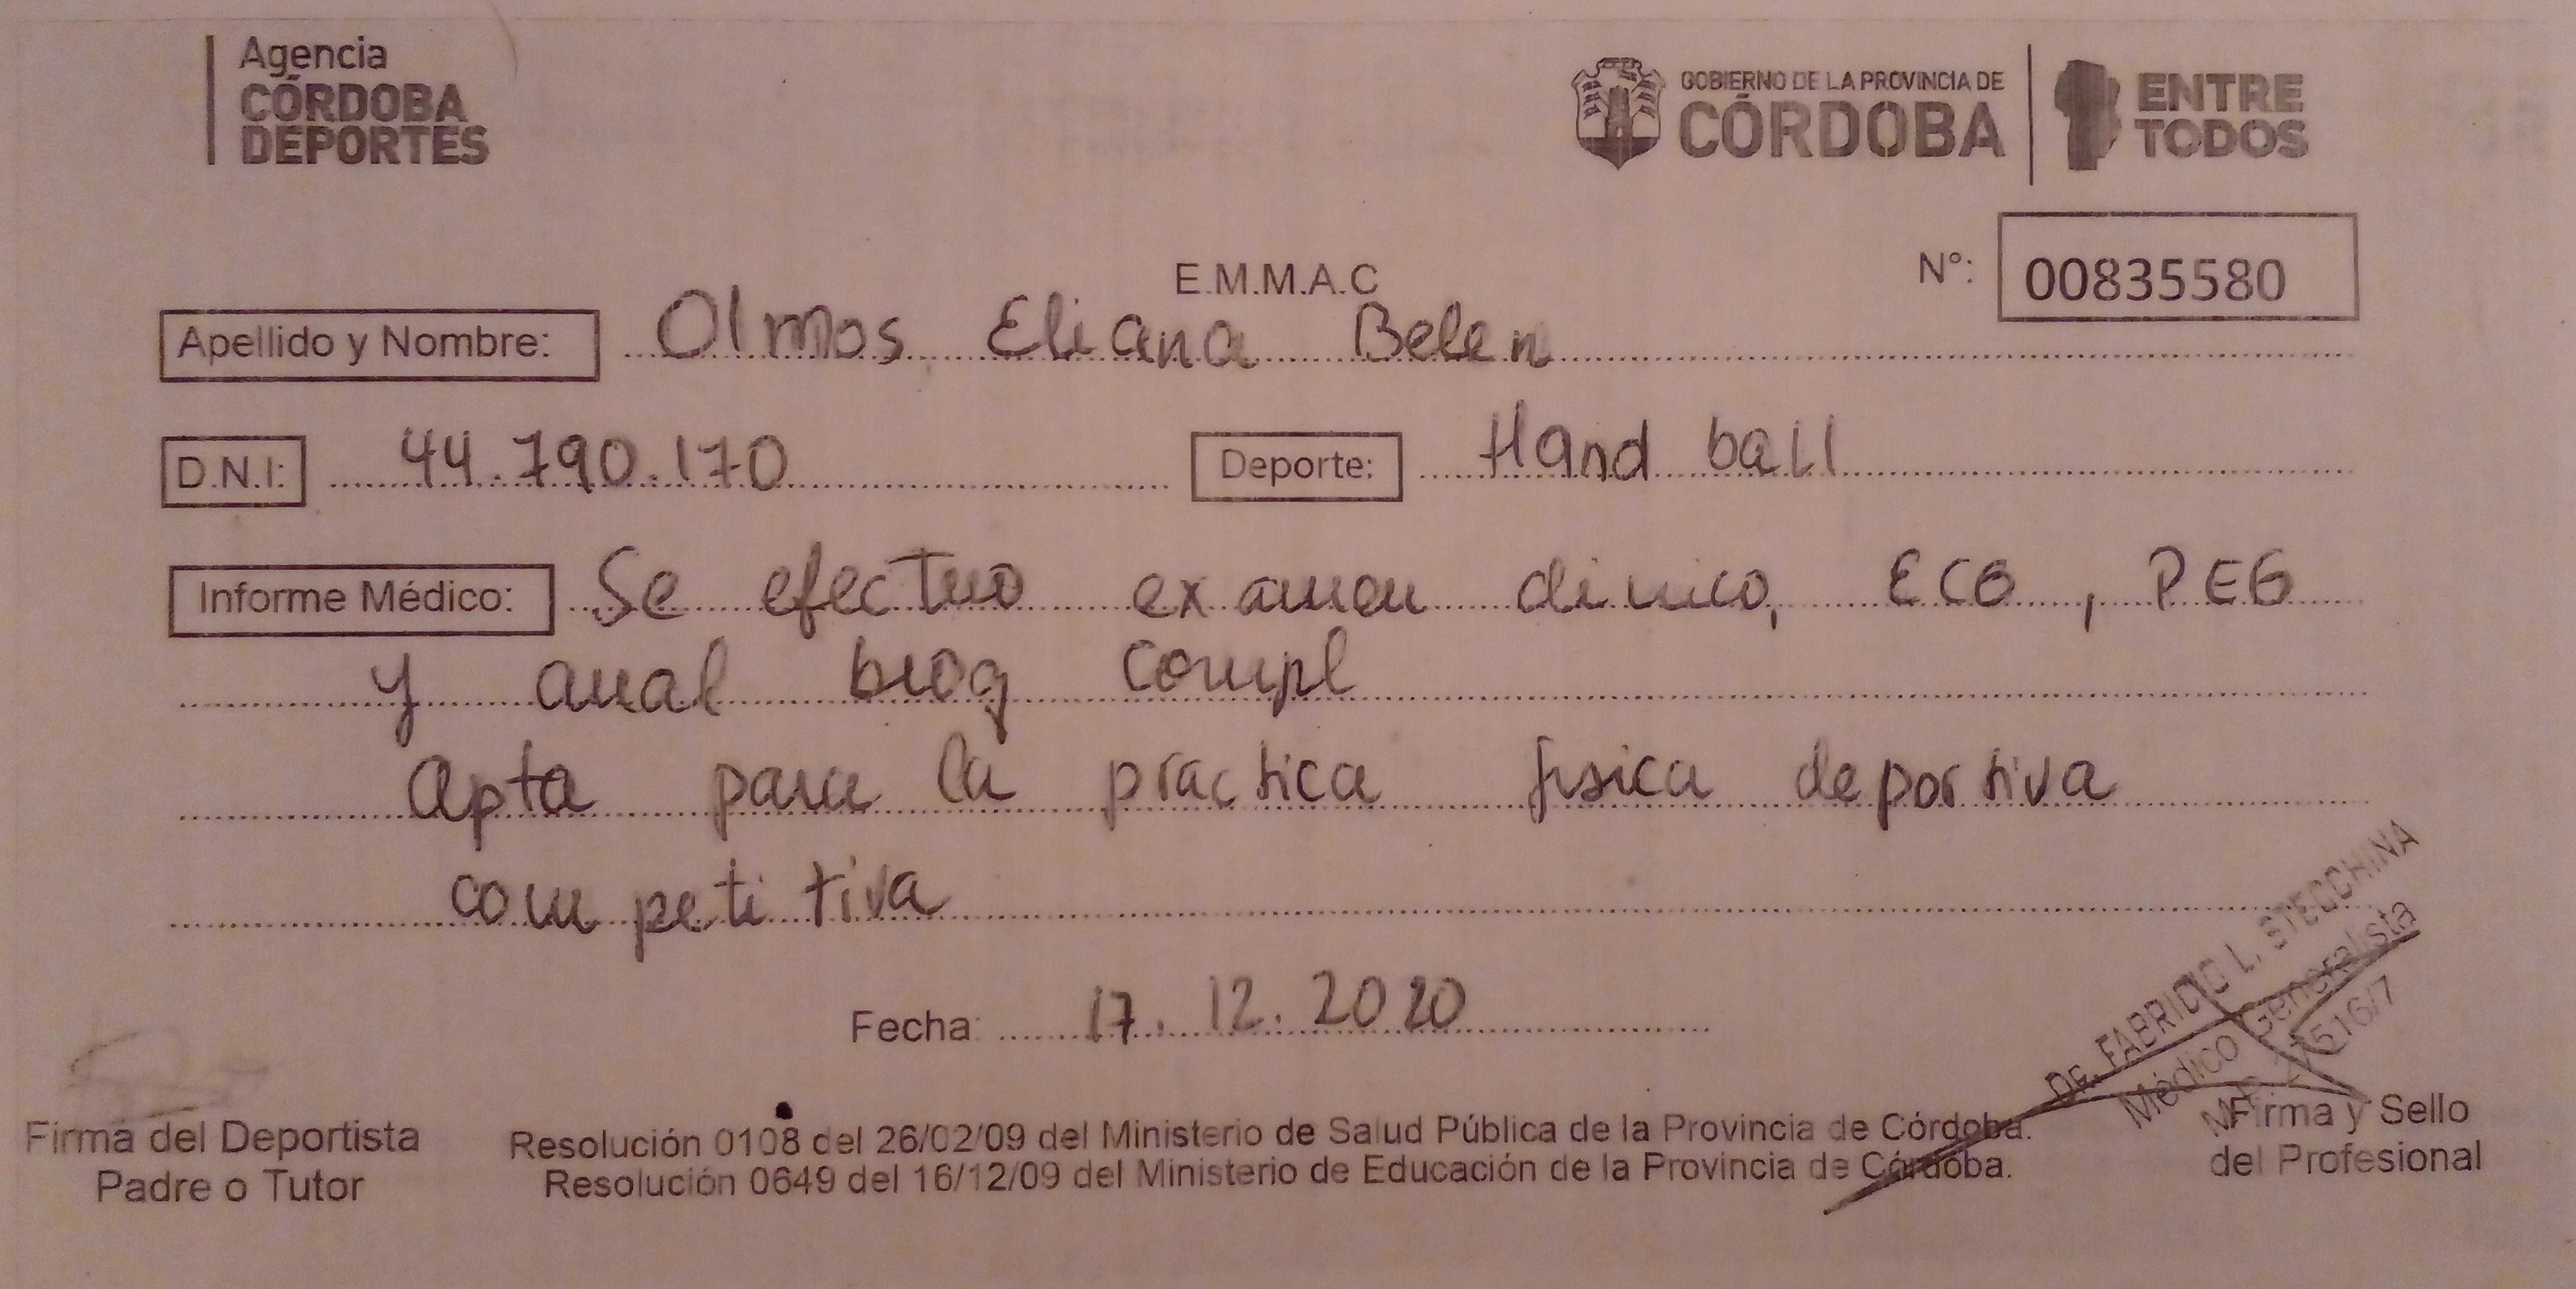 Agencia
CÓRDOBA
DEPORTES
GOBIERNO DE LA PROVINCIA DE
CÓRDOBA
ENTRE
TODOS
E.M.M.A.C
Nº: 00835580
Apellido y Nombre: Olmos Eliana Belen
D.N.I: 44.790.170 Deporte: Hand ball
Informe Médico: Se efectuo examen clinico, ECG, PEG
y anal bioq compl
Apta para la practica fisica deportiva
competitiva
Fecha: 17.12.2020
Dr. FABRICIO L. STECCHINA
Médico Generalista
Firma del Deportista
Padre o Tutor
Resolución 0108 del 26/02/09 del Ministerio de Salud Pública de la Provincia de Córdoba.
Resolución 0649 del 16/12/09 del Ministerio de Educación de la Provincia de Córdoba.
Firma y Sello
del Profesional